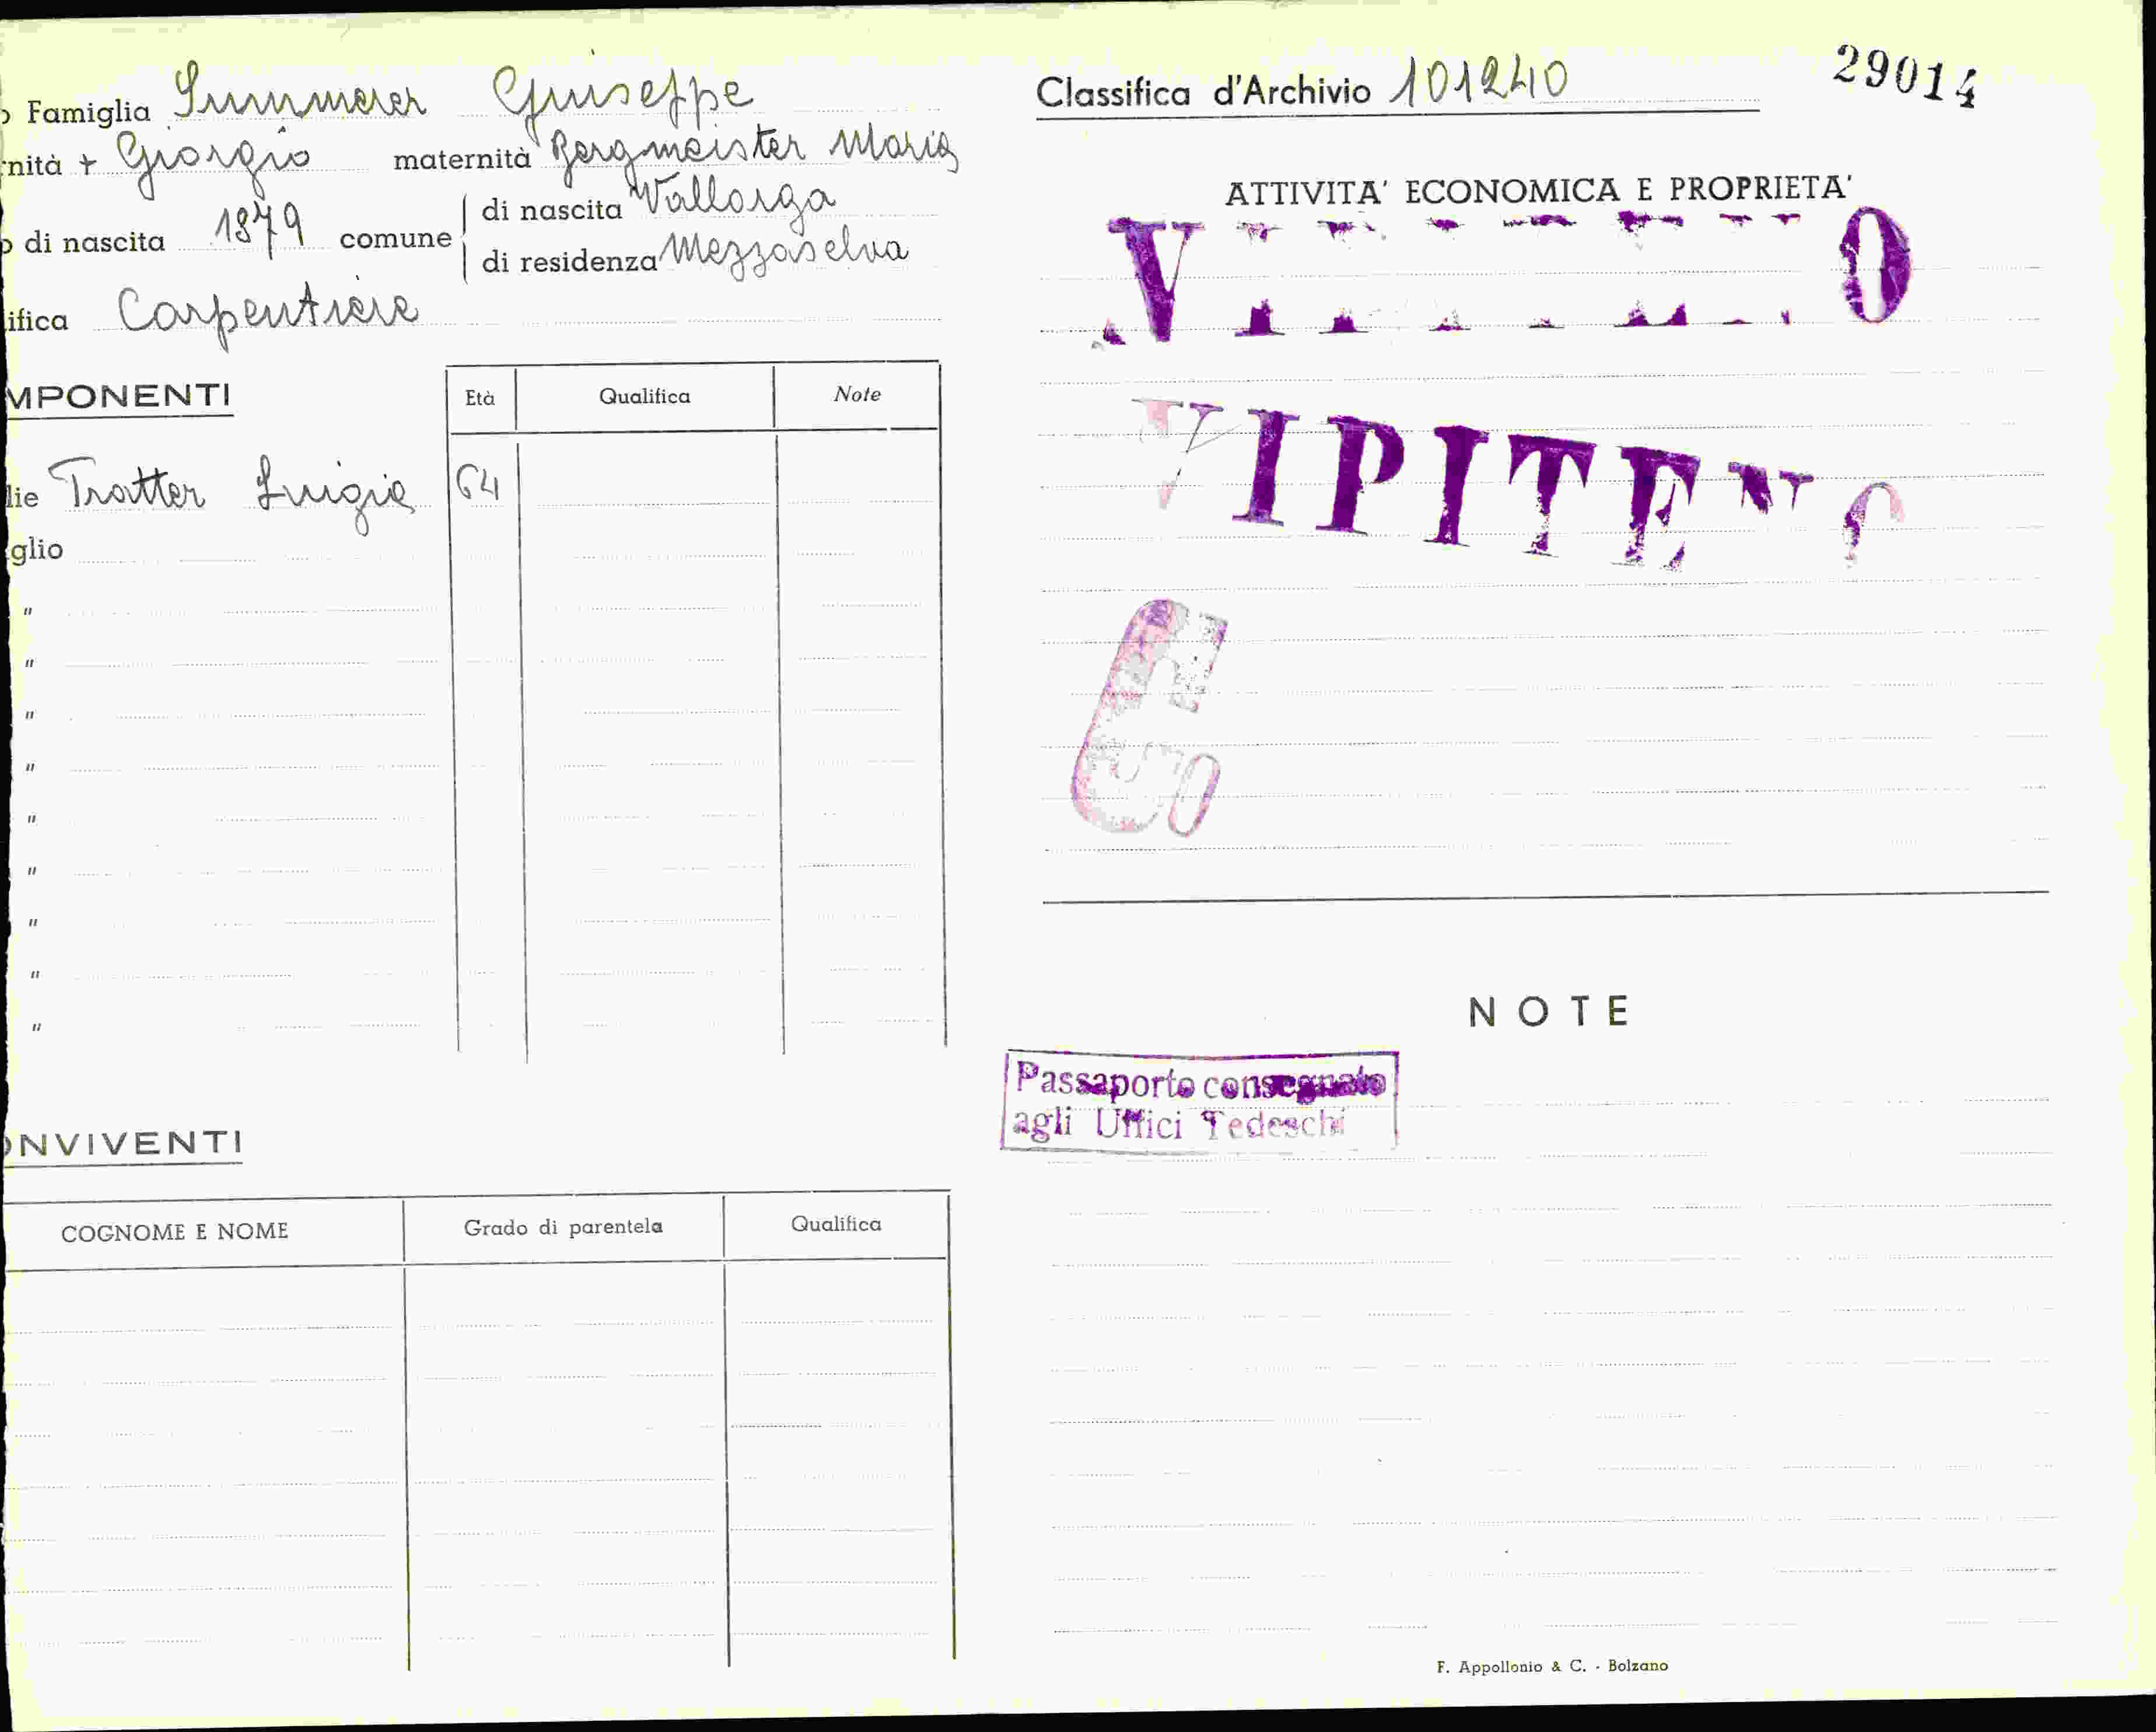 o Famiglia Summerer Giuseppe
rnità + Giorgio maternità Bergmeister Maria
o di nascita 1879 comune di nascita Vallarga
di residenza Mezzaselva
ifica Carpentiere
MPONENTI
Età Qualifica Note
lie Tratter Luigia 64
glio
"
"
"
"
"
"
"
"
"
ONVIVENTI
COGNOME E NOME Grado di parentela Qualifica
Classifica d'Archivio 101240
29014
ATTIVITA' ECONOMICA E PROPRIETA'
VIPITENO
VIPITENO
NOTE
Passaporto consegnato
agli Uffici Tedeschi
F. Appollonio & C. - Bolzano